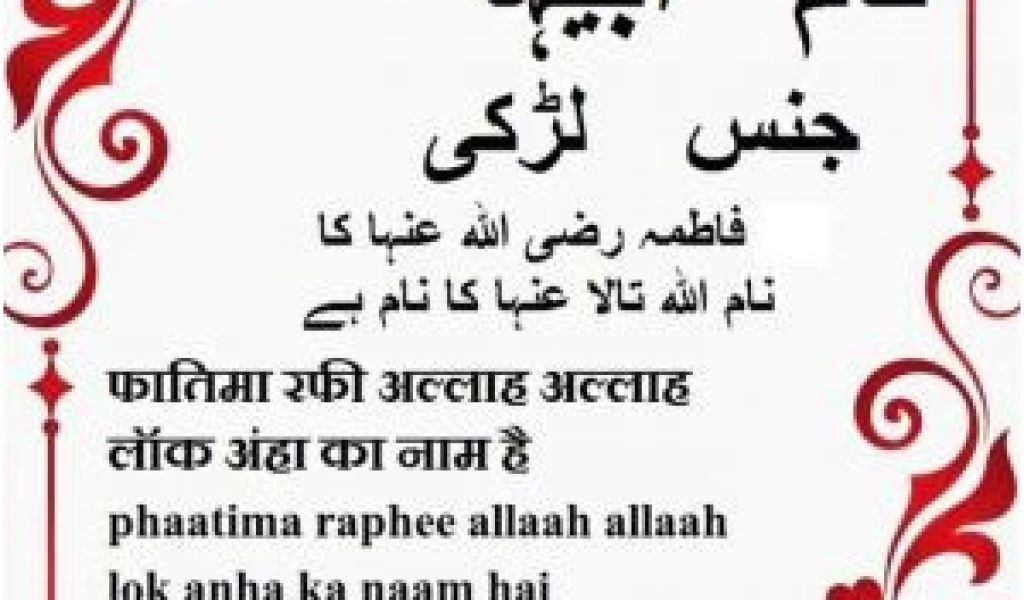 نام ابیہا
جنس لڑکی
فاطمہ رضی اللہ عنہا کا
نام اللہ تالا عنہا کا نام ہے
फातिमा रफी अल्लाह अल्लाह
लॉक अंहा का नाम है
phaatima raphee allaah allaah
lok anha ka naam hai